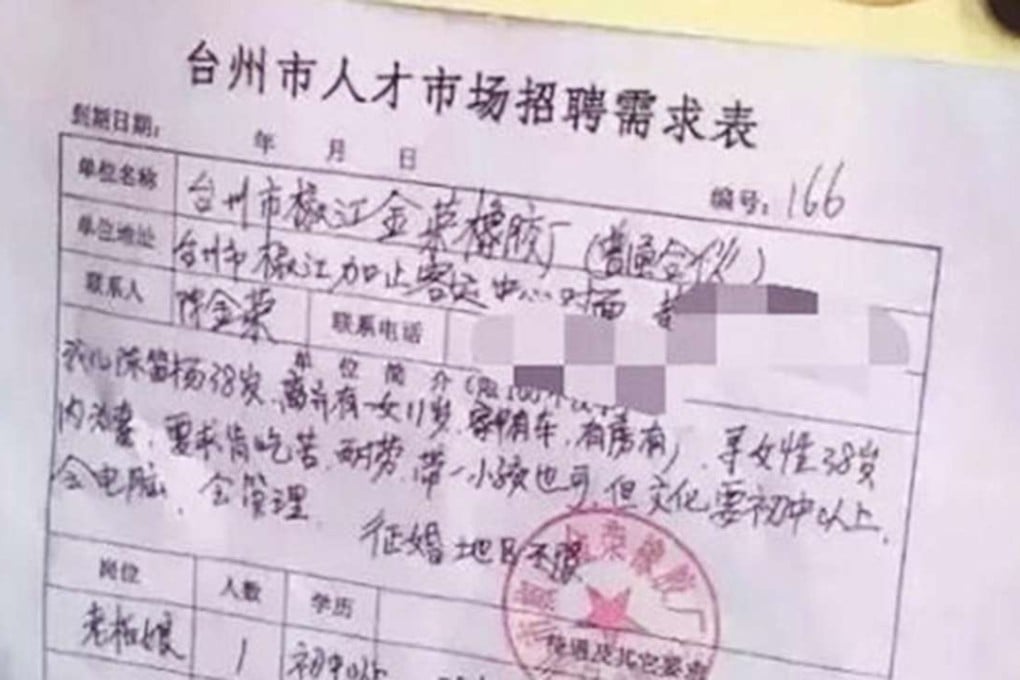 台州市人才市场招聘需求表
到期日期： 年 月 日
编号：166
单位名称 台州市椒江金荣橡胶厂（普通合伙）
单位地址 台州市椒江加止客运中心对面
联系人 陈金荣 联系电话
单 位 简 介（限100字以
我儿陈笛扬38岁、离异有一女11岁，家里有车，有房有厂，寻女性38岁
内 要求肯吃苦、耐劳，带一小孩也可，但文化要初中以上，
会电脑，会管理，
征婚地区不限
岗位 人数 学历 待遇及其它要求
老板娘 1 初中以上
荣橡胶厂